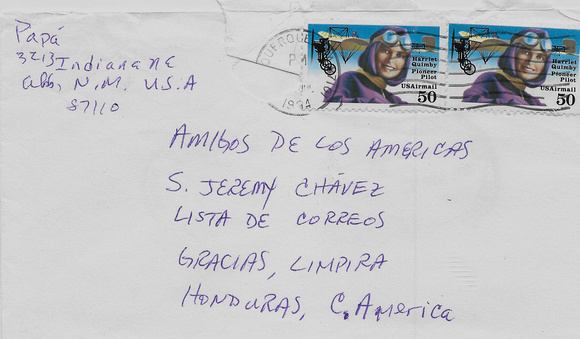 Papá
3213 Indiana NE
Alb, N.M. U.S.A
87110
PM
1994
Harriet
Quimby
Pioneer
Pilot
USAirmail
50
Harriet
Quimby
Pioneer
Pilot
USAirmail
50
AMIGOS DE LOS AMERICAS
S. JEREMY CHÁVEZ
LISTA DE CORREOS
GRACIAS, LIMPIRA
HONDURAS, C. America